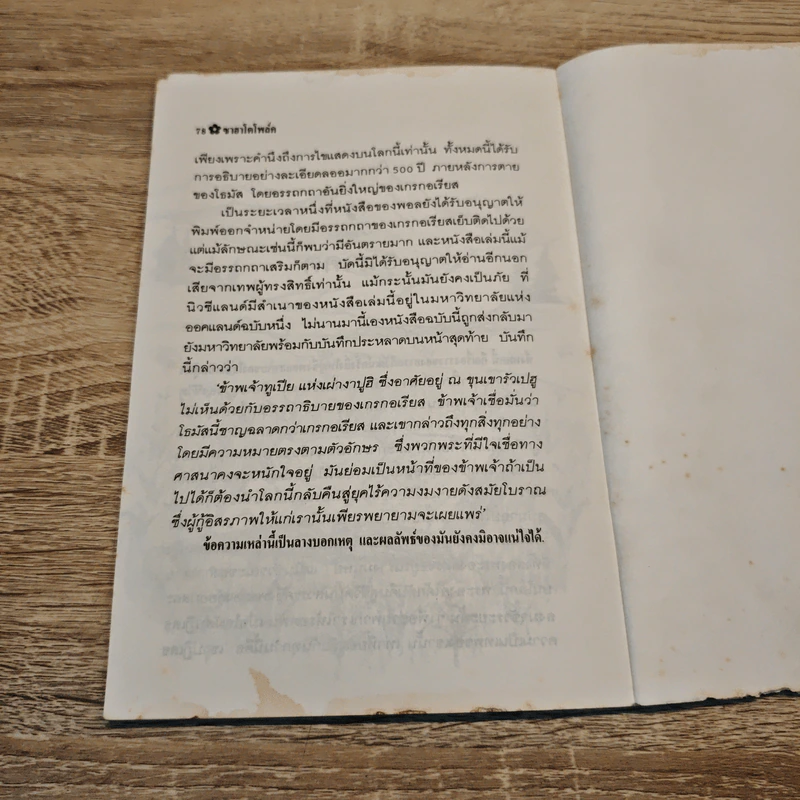 78 ✿ ซาฮาโตโพล์ค
เพียงเพราะคำนึงถึงการไขแสดงบนโลกนี้เท่านั้น ทั้งหมดนี้ได้รับ
การอธิบายอย่างละเอียดลออมากกว่า 500 ปี ภายหลังการตาย
ของโธมัส โดยอรรถกถาอันยิ่งใหญ่ของเกรกอเรียส
เป็นระยะเวลาหนึ่งที่หนังสือของพอลยังได้รับอนุญาตให้
พิมพ์ออกจำหน่ายโดยมีอรรถกถาของเกรกอเรียสเย็บติดไปด้วย
แต่แม้ลักษณะเช่นนี้ก็พบว่ามีอันตรายมาก และหนังสือเล่มนี้แม้
จะมีอรรถกถาเสริมก็ตาม บัดนี้มิได้รับอนุญาตให้อ่านอีกนอก
เสียจากเทพผู้ทรงสิทธิ์เท่านั้น แม้กระนั้นมันยังคงเป็นภัย ที่
นิวซีแลนด์มีสำเนาของหนังสือเล่มนี้อยู่ในมหาวิทยาลัยแห่ง
ออคแลนด์ฉบับหนึ่ง ไม่นานมานี้เองหนังสือฉบับนี้ถูกส่งกลับมา
ยังมหาวิทยาลัยพร้อมกับบันทึกประหลาดบนหน้าสุดท้าย บันทึก
นี้กล่าวว่า
'ข้าพเจ้าทูเปีย แห่งเผ่างาปูฮิ ซึ่งอาศัยอยู่ ณ ขุนเขารัวเปฮู
ไม่เห็นด้วยกับอรรถาธิบายของเกรกอเรียส ข้าพเจ้าเชื่อมั่นว่า
โธมัสนี้ชาญฉลาดกว่าเกรกอเรียส และเขากล่าวถึงทุกสิ่งทุกอย่าง
โดยมีความหมายตรงตามตัวอักษร ซึ่งพวกพระที่มีใจเชื่อทาง
ศาสนาคงจะหนักใจอยู่ มันย่อมเป็นหน้าที่ของข้าพเจ้าถ้าเป็น
ไปได้ก็ต้องนำโลกนี้กลับคืนสู่ยุคไร้ความงมงายดังสมัยโบราณ
ซึ่งผู้กู้อิสรภาพให้แก่เรานั้นเพียรพยายามจะเผยแพร่'
ข้อความเหล่านี้เป็นลางบอกเหตุ และผลลัพธ์ของมันยังคงมิอาจแน่ใจได้.